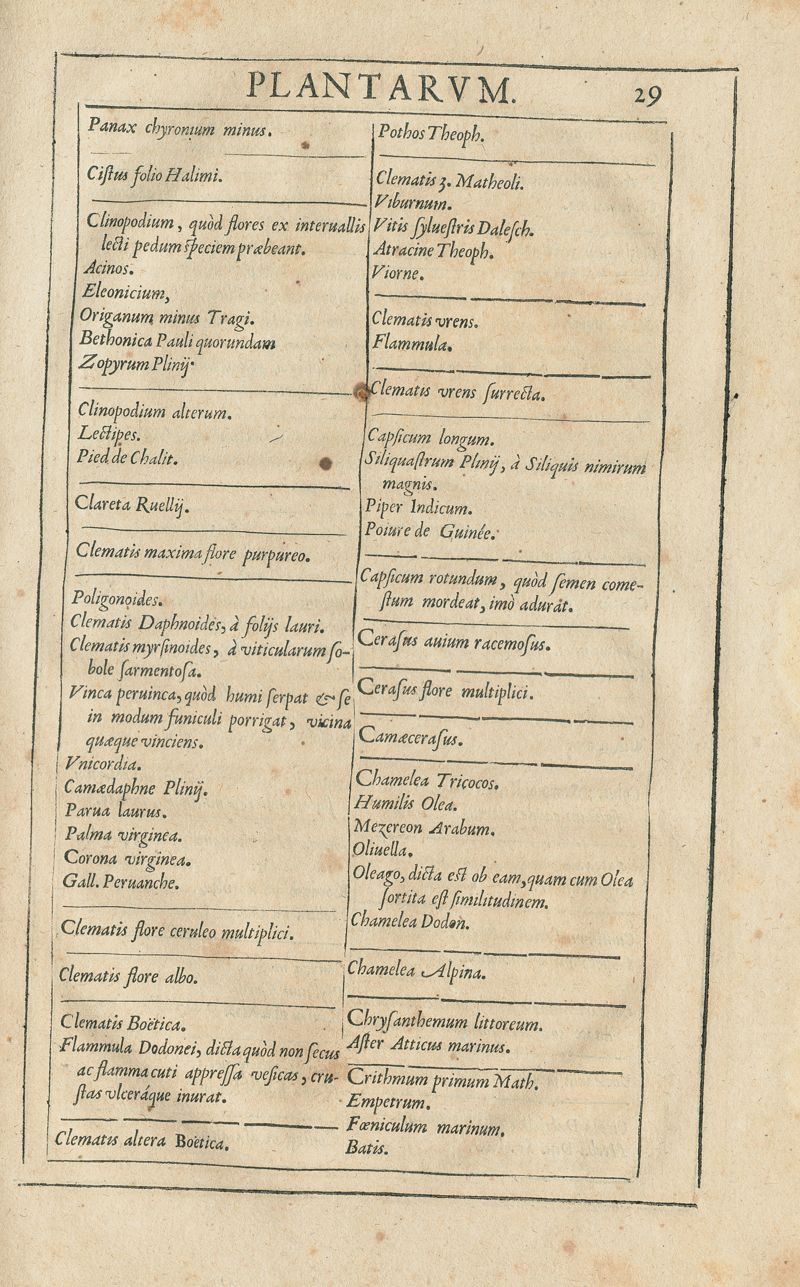 PLANTARVM.
29
Panax chyronium minus.
Cistus folio Halimi.
Clinopodium, quòd flores ex interuallis
lecti pedum speciem præbeant.
Acinos.
Eleonicium,
Origanum minus Tragi.
Bethonica Pauli quorundam
Zopyrum Plinij.
Clinopodium alterum.
Lectipes.
Pied de Chalit.
Clareta Ruellij.
Clematis maxima flore purpureo.
Poligonoides.
Clematis Daphnoides, à folijs lauri.
Clematis myrsinoides, à viticularum so-
bole sarmentosa.
Vinca peruinca, quòd humi serpat & se
in modum funiculi porrigat, vicina
quæque vinciens.
Vnicordia.
Camædaphne Plinij.
Parua laurus.
Palma virginea.
Corona virginea.
Gall. Peruanche.
Clematis flore ceruleo multiplici.
Clematis flore albo.
Clematis Boëtica.
Flammula Dodonei, dicta quòd non secus
ac flamma cuti appressa vesicas, cru-
stas vlceráque inurat.
Clematis altera Boëtica.
Pothos Theoph.
Clematis 3. Matheoli.
Viburnum.
Vitis syluestris Dalesch.
Atracine Theoph.
Viorne.
Clematis vrens.
Flammula.
Clematis vrens surrecta.
Capsicum longum.
Siliquastrum Plinij, à Siliquis nimirum
magnis.
Piper Indicum.
Poiure de Guinée.
Capsicum rotundum, quòd semen come-
stum mordeat, imò adurât.
Cerasus auium racemosus.
Cerasus flore multiplici.
Camæcerasus.
Chamelea Tricocos.
Humilis Olea.
Mezereon Arabum.
Oliuella.
Oleago, dicta est ob eam, quam cum Olea
sortita est similitudinem.
Chamelea Dodon.
Chamelea Alpina.
Chrysanthemum littoreum.
Aster Atticus marinus.
Crithmum primum Math.
Empetrum.
Fœniculum marinum.
Batis.